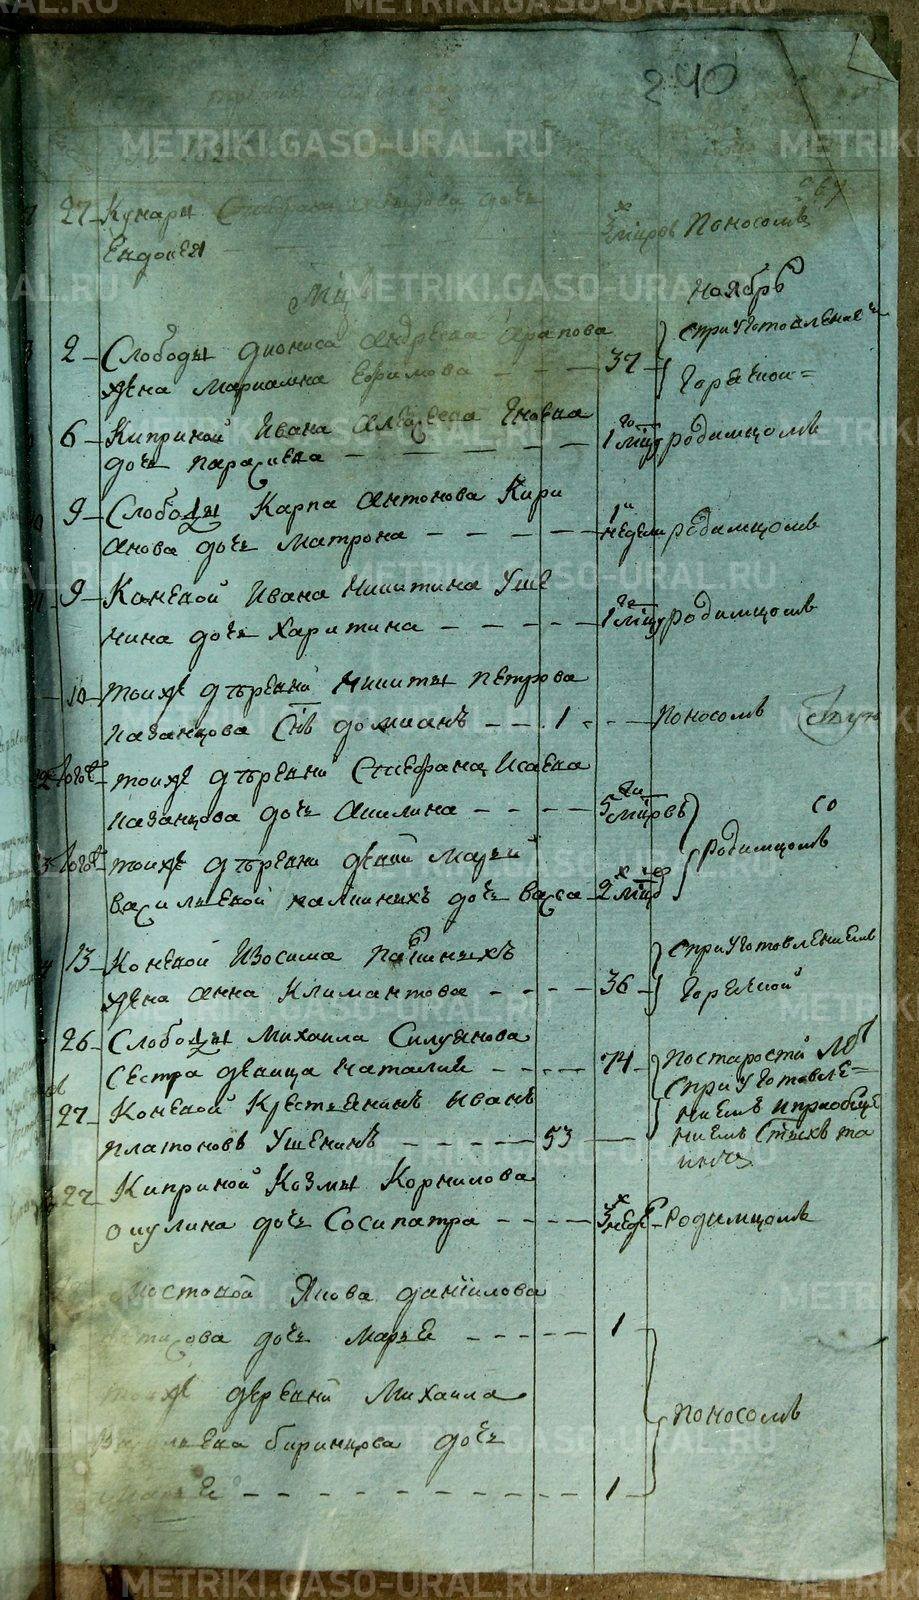 METRIKI.GASO-URAL.RU
240
27 Кунары Стефана дочь
Евдокея 3 мцов Поносомъ
Мцъ Ноябрь
2 Слободы Диониса Андреева Арапова
жена Мариамна Ефимова 37 с приуготовлением
горячкой
6 Киприной Ивана
дочь Параскева 1 го мцу родимцомъ
9 Слободы Карпа Антонова Кири
анова дочь Матрона 1й недели родимцомъ
9 Коневой Ивана Никитина Уше
нина дочь Харитина 1 го мцу родимцомъ
10 тоиже дъревни Никиты Петрова
Казанцова Снъ Домианъ 1 Поносомъ
тогож тоиже дъревни Стефана Исаева
Казанцова дочь Акилина 5 ти мцовъ
тогож тоиже дъревни девки Марьи
Васильевой Калининыхъ дочь Васса 2 х мцов Родимцомъ
13 Коневой Изосима
жена Анна Климантова 36 с приуготовлениемъ
горячкой
26 Слободы Михаила Силуянова
Сестра девица Наталия 74 По старости летъ
с приуготовле
27 Коневой Крестьянинъ Иванъ
Платоновъ Ушенинъ 53 ниемъ и приобще
ниемъ Стыхъ та
инъ
27 Киприной Козмы Корнилова
Окулина дочь Сосипатра 3 х недел Родимцомъ
Мостовой Якова Даниилова
дочь Марья 1
тоиже деревни Михаила
Васильева дочь Поносомъ
Марья 1